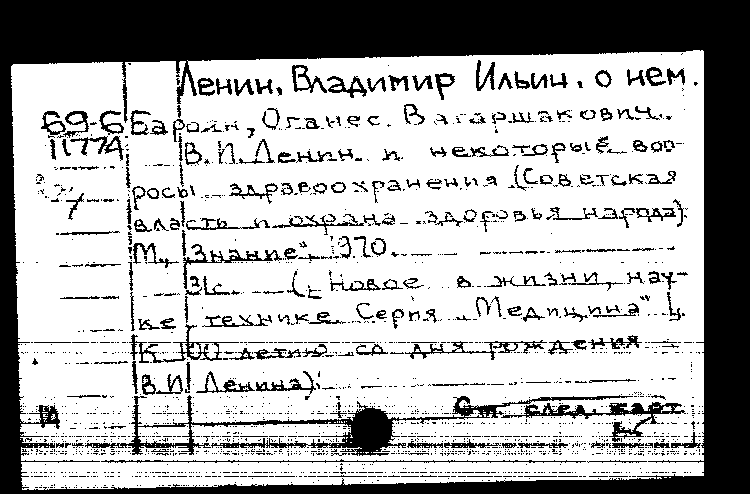 Ленин, Владимир Ильич, о нем.
69-6 Бароян, Оганес Вагаршакович.
11774 В. И. Ленин и некоторые воп-
росы здравоохранения (Советская
власть и охрана здоровья народа).
М., "Знание", 1970.
31с. (Новое в жизни, нау-
ке, технике. Серия "Медицина" 4.
К 100-летию со дня рождения
В.И. Ленина).
См. след. карт.